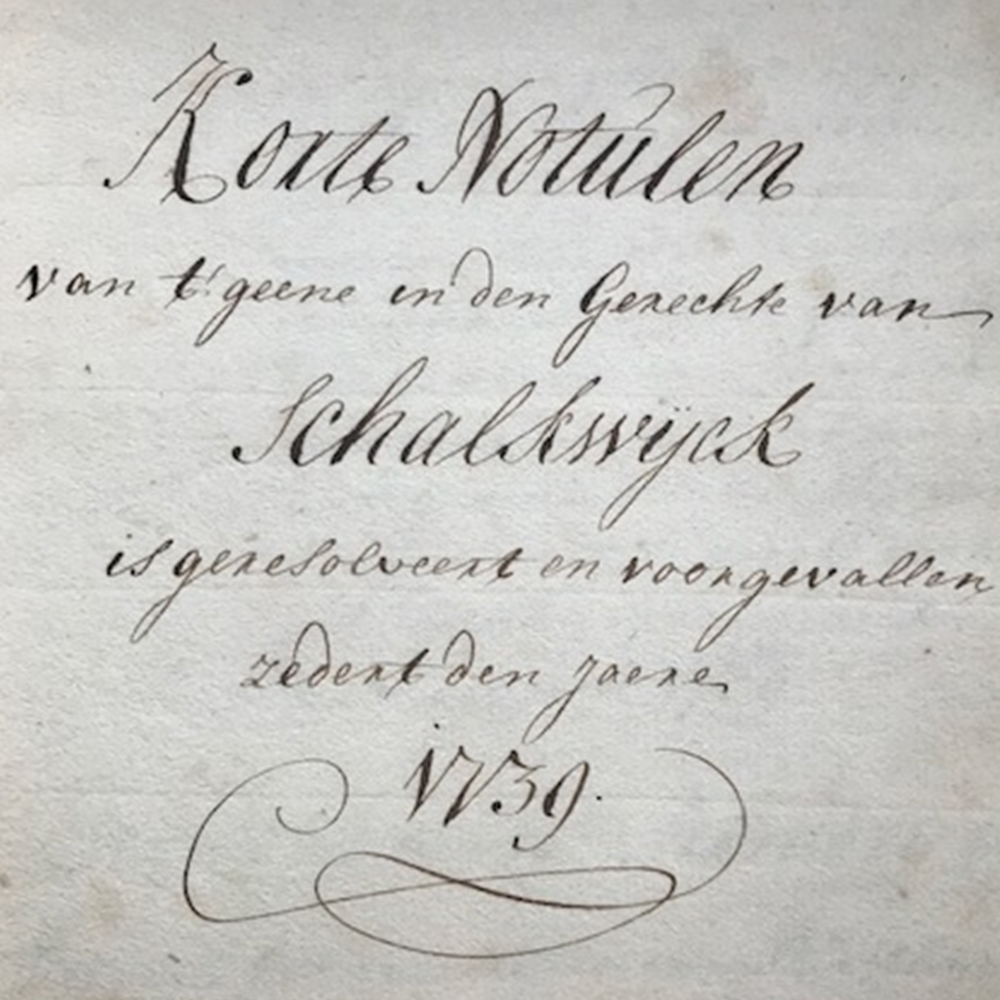 Korte Notulen
van t'geene in den Gerechte van
Schalkwÿck
is geresolveert en voorgevallen
zedert den jaere
1739.